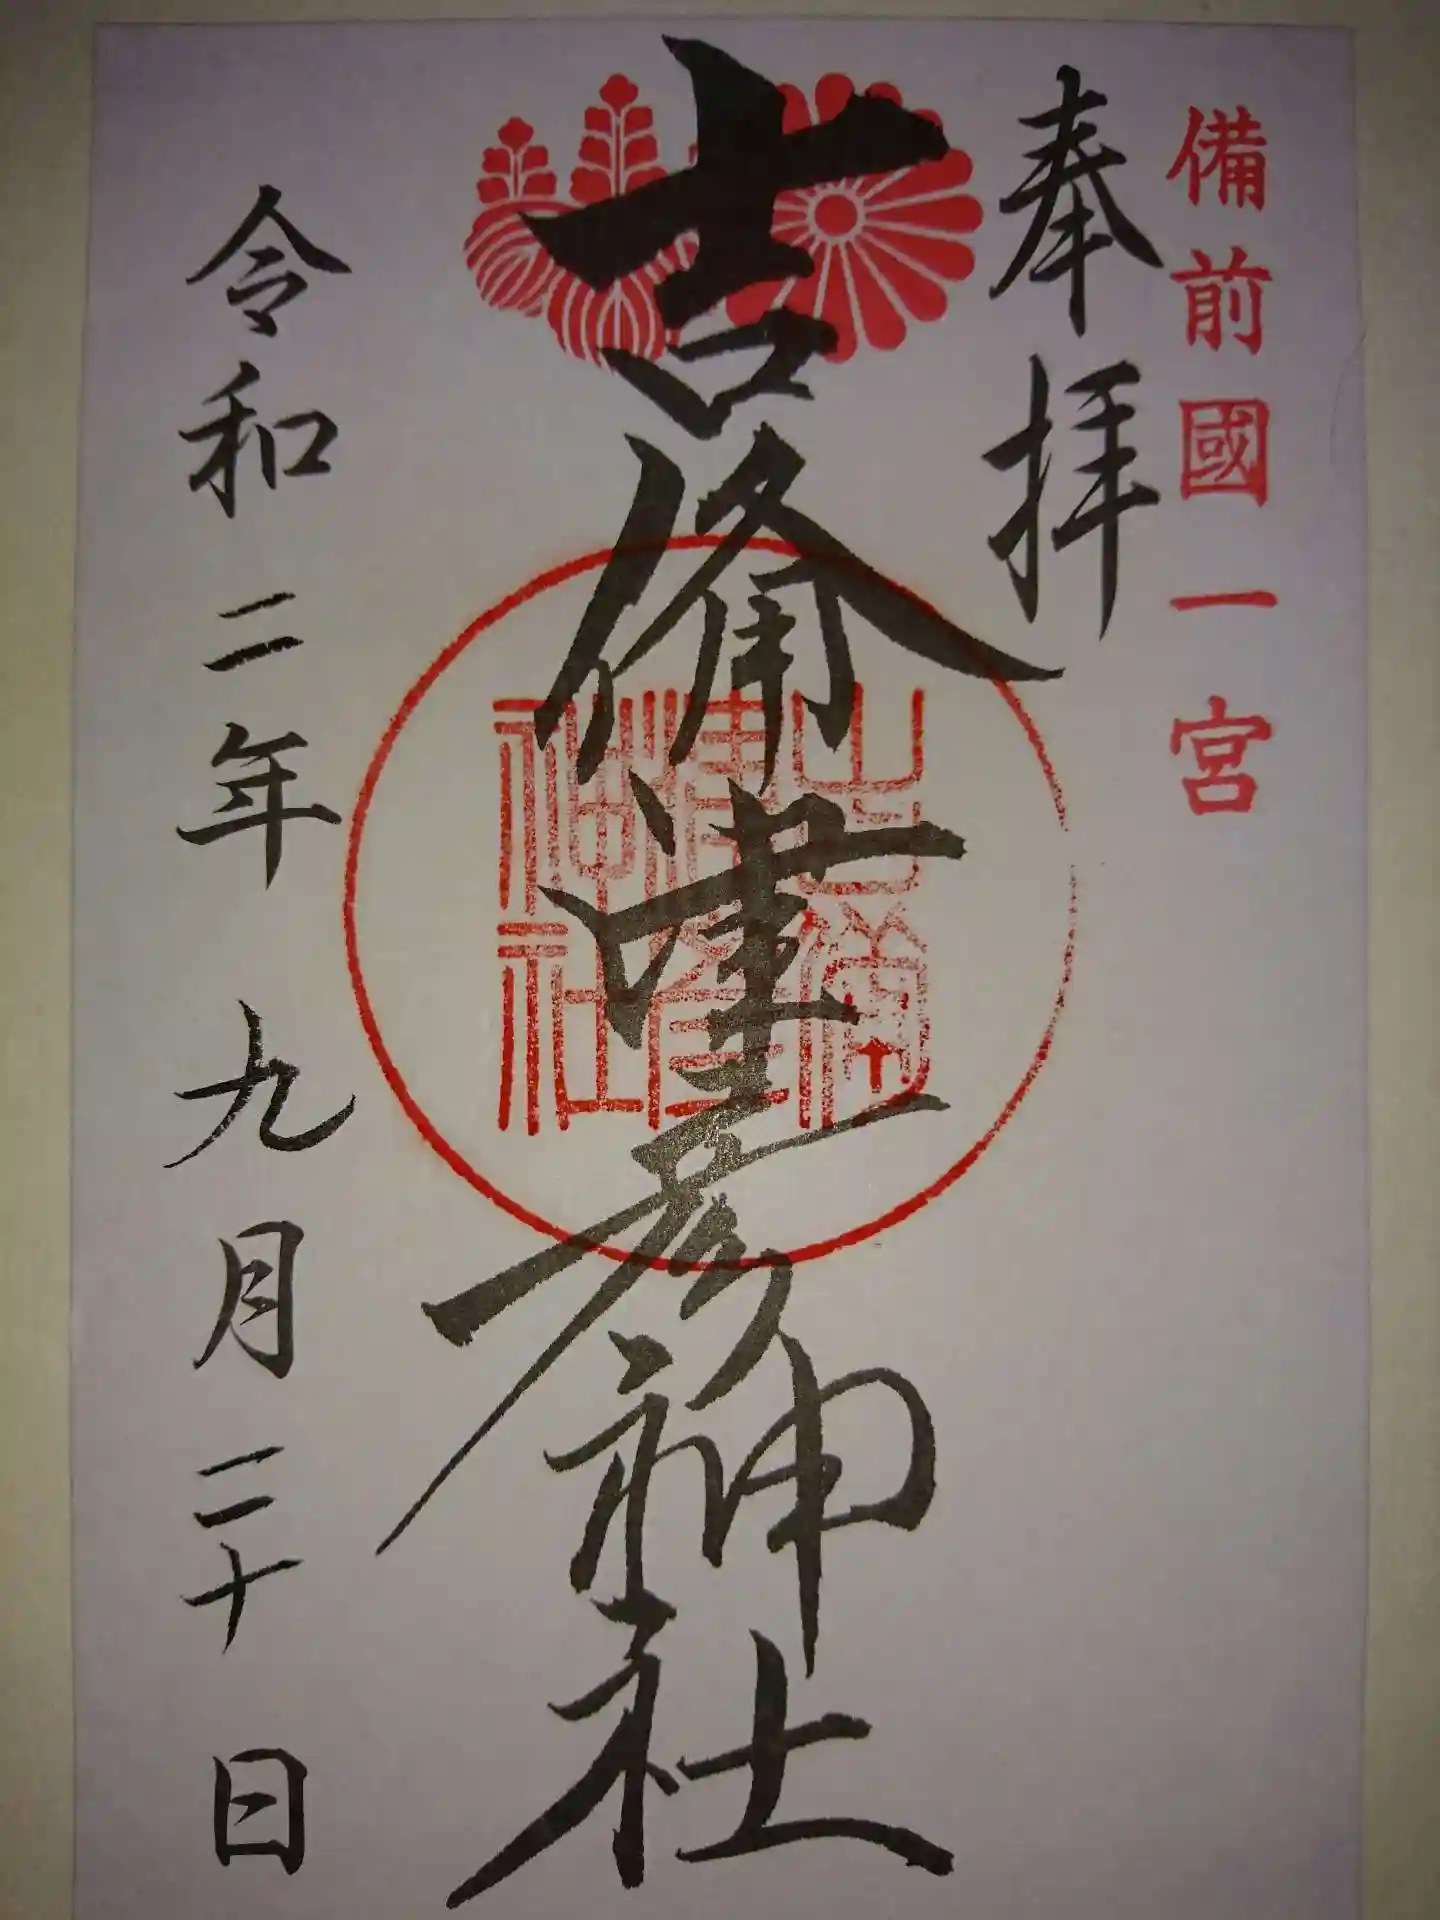 備前國一宮
奉拝
吉備津彦神社
吉備
津彦
神社
令和二年九月二十日